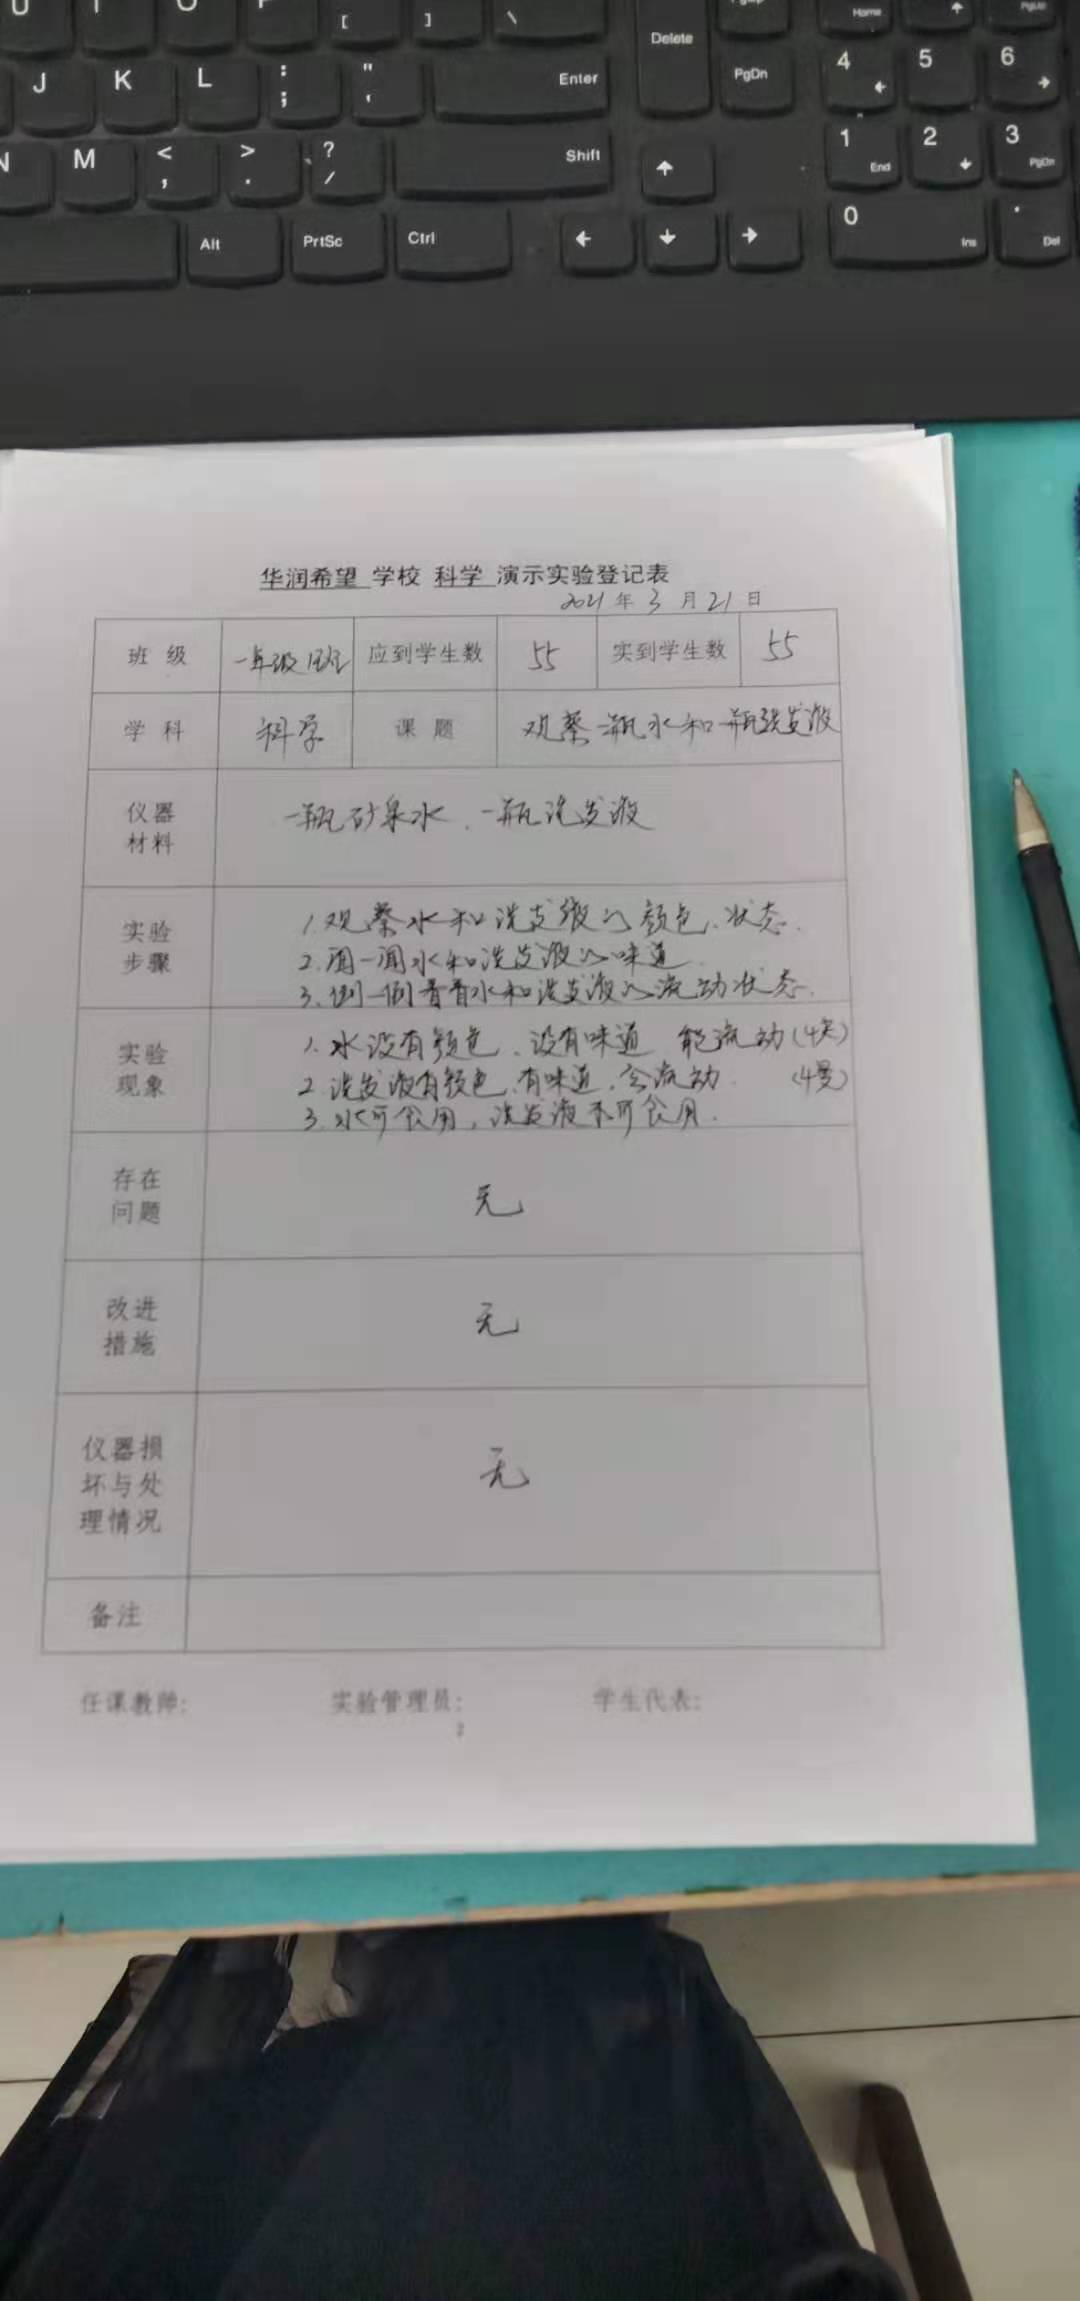 U I O P [ ] \ Delete PgUp Home PgUp
J K L : ; " ' Enter PgDn 4 5 6
N M < , > . ? / Shift 1 End 2 3 PgDn
Alt PrtSc Ctrl 0 Ins . Del
华润希望 学校 科学 演示实验登记表
2021 年 3 月 21 日
班级 一年级1班 应到学生数 55 实到学生数 55
学科 科学 课题 观察一瓶水和一瓶洗发液
仪器
材料
一瓶矿泉水、一瓶洗发液
实验
步骤
1.观察水和洗发液的颜色、状态.
2.闻一闻水和洗发液的味道.
3.倒一倒看看水和洗发液的流动状态.
实验
现象
1.水没有颜色、没有味道 能流动(快)
2.洗发液有颜色、有味道、会流动.(慢)
3.水可食用,洗发液不可食用.
存在
问题
无
改进
措施
无
仪器损
坏与处
理情况
无
备注
任课教师: 实验管理员: 学生代表:
2